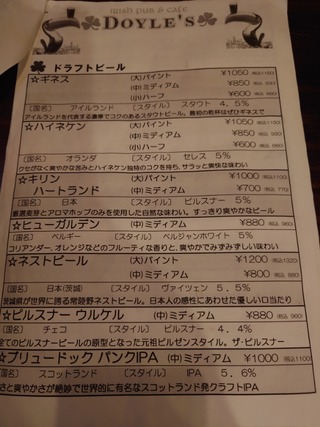 IRISH PUB & CAFE
DOYLE'S
ドラフトビール
☆ギネス (大)パイント ¥1050 (税込1155)
(中)ミディアム ¥850 (税込 935)
(小)ハーフ ¥600 (税込 660)
[国名] アイルランド [スタイル] スタウト 4.5%
アイルランドを代表する濃厚でコクのあるスタウトビール。最初の乾杯はぜひギネスで
☆ハイネケン (大)パイント ¥1050 (税込1155)
(中)ミディアム ¥850 (税込 935)
(小)ハーフ ¥600 (税込 660)
[国名] オランダ [スタイル] セレス 5%
クセがなく爽やかな苦みとハイネケン独特のコクを持ち、サラッと爽快な味わい
☆キリン (大)パイント ¥1000 (税込1100)
ハートランド (中)ミディアム ¥700 (税込 770)
[国名] 日本 [スタイル] ピルスナー 5%
厳選麦芽とアロマホップのみを使用した自然な味わい。すっきり爽やかなビール
☆ヒューガルデン (中)ミディアム ¥880 (税込 968)
[国名] ベルギー [スタイル] ベルジャンホワイト 5%
コリアンダー、オレンジなどのフルーティな香りと、爽やかでみずみずしい味わい
☆ネストビール (大)パイント ¥1200 (税込1320)
(中)ミディアム ¥800 (税込 880)
[国名] 日本(茨城) [スタイル] ヴァイツェン 5.5%
茨城県が世界に誇る常陸野ネストビール。日本人の感性にあわせた優しい口当たり
☆ピルスナー ウルケル (中)ミディアム ¥880 (税込 968)
[国名] チェコ [スタイル] ピルスナー 4.4%
全てのピルスナービールの原型となった元祖ピルゼンスタイル。ザ・ピルスナー
☆ブリュードック パンクIPA (中)ミディアム ¥1000 (税込1100)
国名] スコットランド [スタイル] IPA 5.6%
さと爽やかさが絶妙で世界的に有名なスコットランド発クラフトIPA